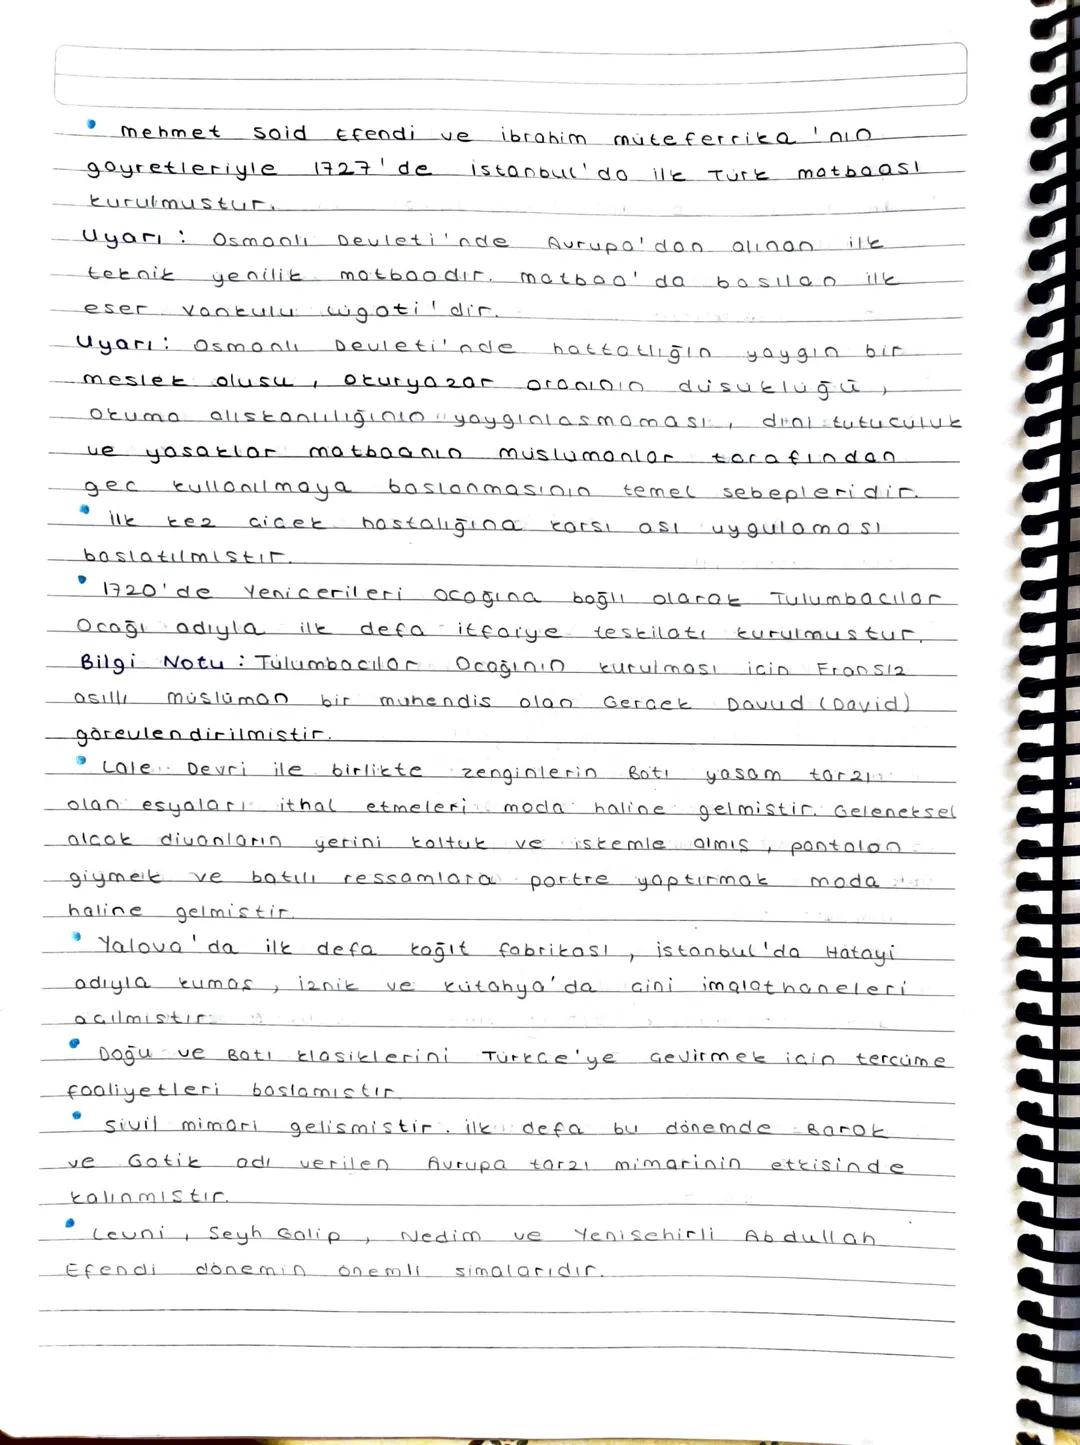 • mehmet said Efendi ve ibrahim müteferrika'nın
gayretleriyle 1727'de istanbul'da ilk Türk matbaası
kurulmustur.
Uyarı : Osmanlı Devleti'nde Avrupa'dan alınan ilk
teknik yenilik matbaadır. matbaa'da basılan ilk
eser Vankulu Lügati'dir.
Uyarı : Osmanlı Devleti'nde hattatlığın yaygın bir
meslek olusu, okuryazar oranının düsüklüğü,
okuma alıskanlılığının yaygınlasmaması, dini tutuculuk
ve yasaklar matbaanın müslumanlar tarafından
gec kullanılmaya baslanmasının temel sebepleridir.
• ilk kez cicek hastalığına karsı ası uygulaması
baslatılmıstır.
• 1720'de Yenicerileri ocağına bağlı olarak Tulumbacılar
Ocağı adıyla ilk defa itfaiye teskilatı kurulmustur.
Bilgi Notu : Tulumbacılar Ocağının kurulması icin Fransız
asıllı müslüman bir muhendis olan Gercek Davud (David)
görevlendirilmistir.
• Lale Devri ile birlikte zenginlerin Batı yasam tarzı
olan esyaları ithal etmeleri moda haline gelmistir. Geleneksel
alcak divanların yerini koltuk ve iskemle almış, pantolon
giymek ve batılı ressamlara portre yaptırmak moda
haline gelmistir.
• Yalova'da ilk defa kağıt fabrikası, istanbul'da Hatayi
adıyla kumas, iznik ve kütahya'da cini imalathaneleri
acılmıstır.
• Doğu ve Batı klasiklerini Türkce'ye cevirmek icin tercüme
faaliyetleri baslamıstır
• sivil mimari gelismistir. ilk defa bu dönemde Barok
ve Gotik adı verilen Avrupa tarzı mimarinin etkisinde
kalınmıstır.
• Levni, Seyh Galip, Nedim ve Yenisehirli Abdullah
Efendi dönemin önemli simalarıdır.